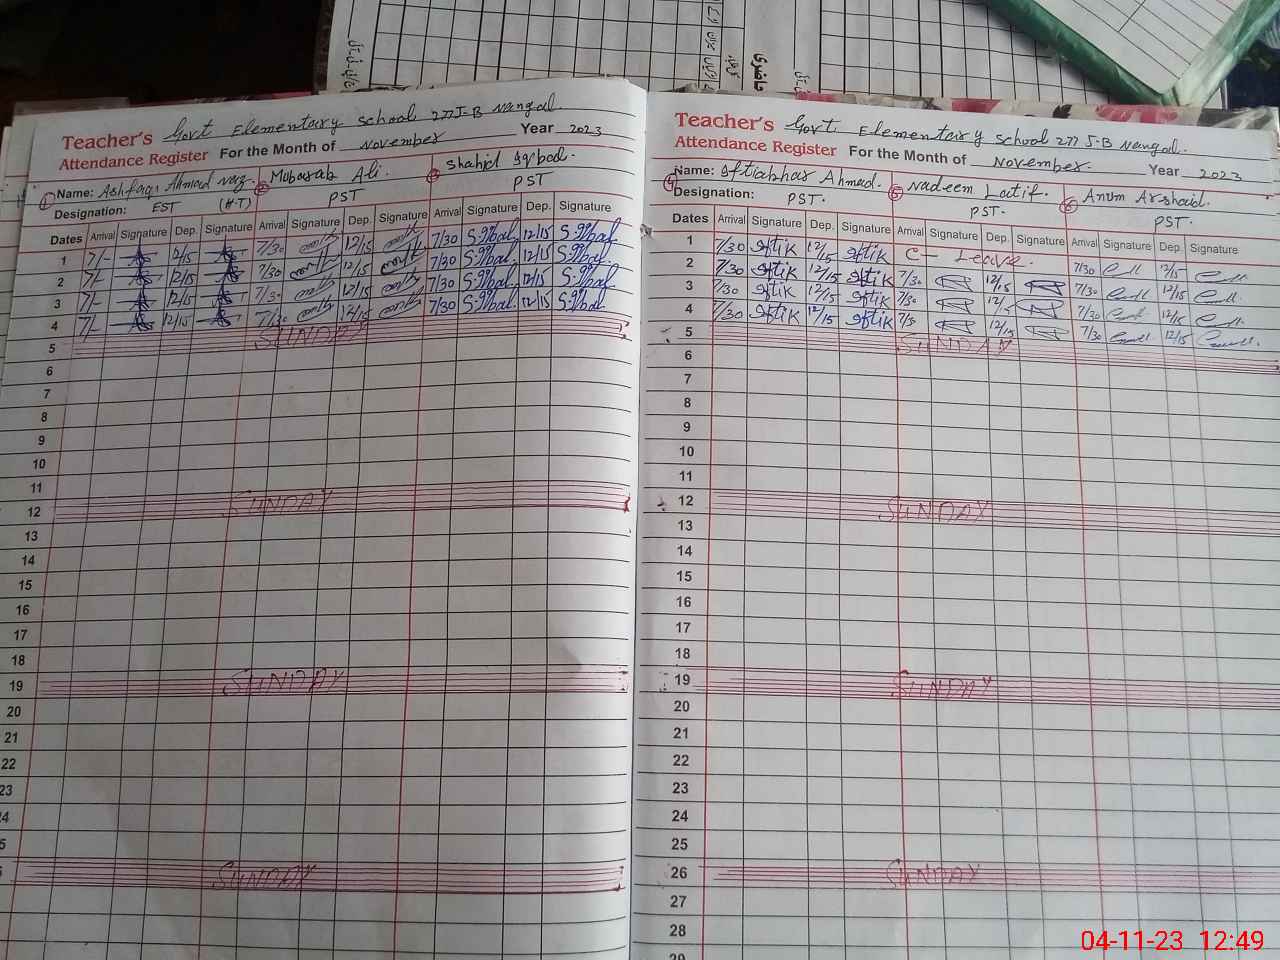 Teacher's Govt Elementary school 277 J-B Nangal.
Attendance Register For the Month of November Year 2023
① Name: Ashfaq Ahmad ② Mubarab Ali. ③ Shahid Iqbal.
Designation: EST (H-T) PST PST
Dates Arrival Signature Dep. Signature Arrival Signature Dep. Signature Arrival Signature Dep. Signature
1 7/- 12/15 7/30 12/15 7/30 S.Iqbal 12/15 S.Iqbal
2 7/- 12/15 7/30 12/15 7/30 S.Iqbal 12/15 S.Iqbal
3 7/- 12/15 7/30 12/15 7/30 S.Iqbal 12/15 S.Iqbal
4 7/- 12/15 7/30 12/15 7/30 S.Iqbal 12/15 S.Iqbal
5 SUNDAY
6
7
8
9
10
11
12 SUNDAY
13
14
15
16
17
18
19 SUNDAY
20
21
22
23
24
5
SUNDAY
Teacher's Govt. Elementary school 277 J-B Nangal.
Attendance Register For the Month of November. Year 2023
④ Name: Iftiakhar Ahmad. ⑤ Nadeem Latif. ⑥ Anum Arshaid.
Designation: PST. PST. PST.
Dates Arrival Signature Dep. Signature Arrival Signature Dep. Signature Arrival Signature Dep. Signature
1 7/30 Iftik 12/15 Iftik C- Leave. 7/30 12/15
2 7/30 Iftik 12/15 Iftik 7/30 12/15 7/30 12/15
3 7/30 Iftik 12/15 Iftik 7/30 12/15 7/30 12/15
4 7/30 Iftik 12/15 Iftik 7/30 12/15 7/30 12/15
5 SUNDAY
6
7
8
9
10
11
12 SUNDAY
13
14
15
16
17
18
19 SUNDAY
20
21
22
23
24
25
26 SUNDAY
27
28
29
04-11-23 12:49